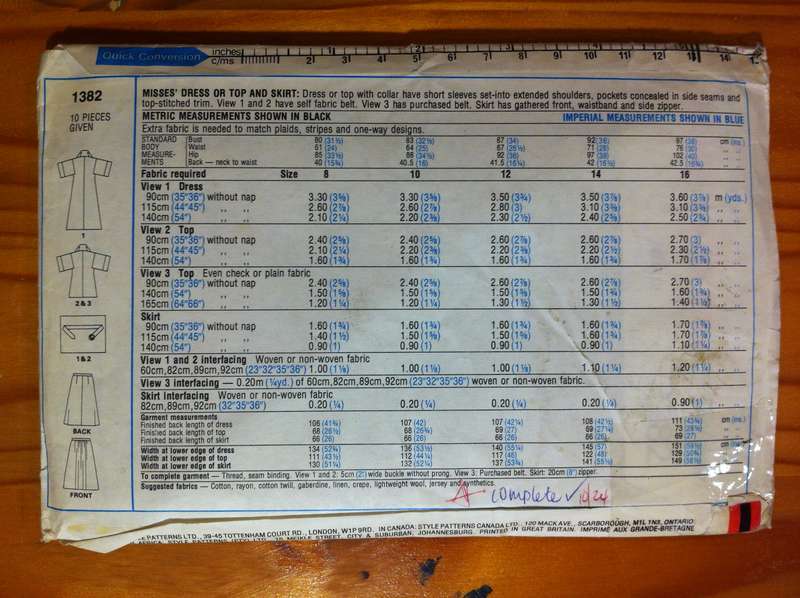 Quick Conversion inches 1 2 3 4 5
c/ms 2 3 4 5 6 7 8 9 10 11 12 13 14
1382
10 PIECES
GIVEN
MISSES' DRESS OR TOP AND SKIRT: Dress or top with collar have short sleeves set-into extended shoulders, pockets concealed in side seams and
top-stitched trim. View 1 and 2 have self fabric belt. View 3 has purchased belt. Skirt has gathered front, waistband and side zipper.
METRIC MEASUREMENTS SHOWN IN BLACK IMPERIAL MEASUREMENTS SHOWN IN BLUE
Extra fabric is needed to match plaids, stripes and one-way designs.
STANDARD Bust 80 (31½) 83 (32½) 87 (34) 92 (36) 97 (38) cm (ins.)
BODY Waist 61 (24) 64 (25) 67 (26½) 71 (28) 76 (30) ,, ,,
MEASURE- Hip 85 (33½) 88 (34½) 92 (36) 97 (38) 102 (40) ,, ,,
MENTS Back — neck to waist 40 (15¾) 40.5 (16) 41.5 (16¼) 42 (16½) 42.5 (16¾) ,, ,,
Fabric required Size 8 10 12 14 16
View 1 Dress
90cm (35"36") without nap 3.30 (3⅝) 3.30 (3⅝) 3.50 (3¾) 3.50 (3⅞) 3.60 (3⅞) m (yds.)
115cm (44"45") ,, ,, 2.60 (2⅞) 2.60 (2⅞) 2.80 (3) 3.10 (3⅜) 3.10 (3⅜) ,, ,,
140cm (54") ,, ,, 2.10 (2¼) 2.20 (2⅜) 2.30 (2½) 2.40 (2⅝) 2.50 (2¾) ,, ,,
View 2 Top
90cm (35"36") without nap 2.40 (2⅝) 2.40 (2⅝) 2.60 (2⅞) 2.60 (2⅞) 2.70 (3) ,, ,,
115cm (44"45") ,, ,, 2.10 (2¼) 2.20 (2⅜) 2.20 (2⅜) 2.20 (2½) 2.30 (2½) ,, ,,
140cm (54") ,, ,, 1.60 (1¾) 1.60 (1¾) 1.60 (1¾) 1.60 (1¾) 1.70 (1⅞) ,, ,,
View 3 Top Even check or plain fabric
90cm (35"36") without nap 2.40 (2⅝) 2.40 (2⅝) 2.60 (2⅞) 2.60 (2⅞) 2.70 (3) ,, ,,
140cm (54") ,, ,, 1.50 (1⅝) 1.50 (1⅝) 1.50 (1⅝) 1.50 (1⅝) 1.60 (1¾) ,, ,,
165cm (64"66") ,, ,, 1.20 (1¼) 1.20 (1¼) 1.30 (1½) 1.30 (1½) 1.40 (1½) ,, ,,
Skirt
90cm (35"36") without nap 1.60 (1¾) 1.60 (1¾) 1.60 (1¾) 1.60 (1¾) 1.70 (1⅞) ,, ,,
115cm (44"45") ,, ,, 1.40 (1½) 1.50 (1⅝) 1.60 (1¾) 1.60 (1¾) 1.70 (1⅞) ,, ,,
140cm (54") ,, ,, 0.90 (1) 0.90 (1) 0.90 (1) 0.90 (1) 1.10 (1¼) ,, ,,
View 1 and 2 interfacing Woven or non-woven fabric
60cm,82cm,89cm,92cm (23"32"35"36") 1.00 (1⅛) 1.00 (1⅛) 1.00 (1⅛) 1.10 (1¼) 1.20 (1¼) ,, ,,
View 3 interfacing — 0.20m (¼yd.) of 60cm,82cm,89cm,92cm (23"32"35"36") woven or non-woven fabric.
Skirt interfacing Woven or non-woven fabric
82cm,89cm,92cm (32"35"36") 0.20 (¼) 0.20 (¼) 0.20 (¼) 0.20 (¼) 0.90 (1) ,, ,,
Garment measurements
Finished back length of dress 106 (41¾) 107 (42) 107 (42¼) 108 (42½) 111 (43¾) cm (ins.)
Finished back length of top 68 (26½) 68 (26¾) 69 (27) 69 (27¼) 73 (28½) ,, ,,
Finished back length of skirt 66 (26) 66 (26) 66 (26) 66 (26) 69 (27) ,, ,,
Width at lower edge of dress 134 (52¾) 136 (53½) 140 (55¼) 145 (57) 151
Width at lower edge of top 111 (43½) 112 (44¼) 117 (46) 122 (48) 129
Width at lower edge of skirt 130 (51¼) 132 (52¼) 137 (53¾) 141 (55½) 149
To complete garment — Thread, seam binding. View 1 and 2: 5cm (2") wide buckle without prong. View 3: Purchased belt. Skirt: 20cm (8") zipper.
Suggested fabrics — Cotton, rayon, cotton twill, gaberdine, linen, crepe, lightweight wool, jersey and synthetics.
A complete ✓
1
2 & 3
1 & 2
BACK
FRONT
PATTERNS LTD., 39-45 TOTTENHAM COURT RD., LONDON, W1P 9RD. IN CANADA: STYLE PATTERNS CANADA LTD., 120 MACK AVE., SCARBOROUGH, M1L 1N3, ONTARIO
AFRICA, STYLE PATTERNS (PTY) LTD., MEIKLE STREET, CITY & SUBURBAN, JOHANNESBURG. PRINTED IN GREAT BRITAIN. IMPRIMÉ AUX GRANDE-BRETAGNE